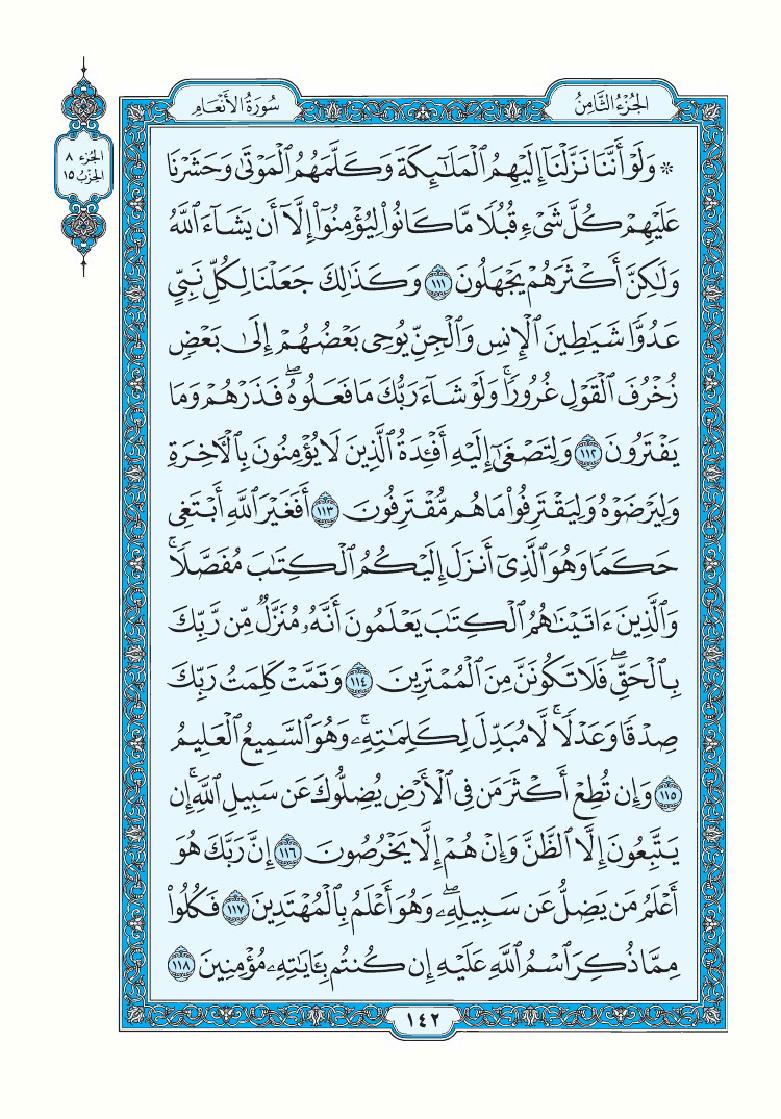 الجُزْءُ الثَّامِنُ
سُورَةُ الأَنْعَام
الجزء ٨
الحِزب ١٥
۞ وَلَوْ أَنَّنَا نَزَّلْنَآ إِلَيْهِمُ ٱلْمَلَـٰٓئِكَةَ وَكَلَّمَهُمُ ٱلْمَوْتَىٰ وَحَشَرْنَا
عَلَيْهِمْ كُلَّ شَىْءٍ قُبُلًا مَّا كَانُوا۟ لِيُؤْمِنُوٓا۟ إِلَّآ أَن يَشَآءَ ٱللَّهُ
وَلَـٰكِنَّ أَكْثَرَهُمْ يَجْهَلُونَ ١١١ وَكَذَٰلِكَ جَعَلْنَا لِكُلِّ نَبِىٍّ
عَدُوًّا شَيَـٰطِينَ ٱلْإِنسِ وَٱلْجِنِّ يُوحِى بَعْضُهُمْ إِلَىٰ بَعْضٍ
زُخْرُفَ ٱلْقَوْلِ غُرُورًا ۚ وَلَوْ شَآءَ رَبُّكَ مَا فَعَلُوهُ ۖ فَذَرْهُمْ وَمَا
يَفْتَرُونَ ١١٢ وَلِتَصْغَىٰٓ إِلَيْهِ أَفْـِٔدَةُ ٱلَّذِينَ لَا يُؤْمِنُونَ بِٱلْـَٔاخِرَةِ
وَلِيَرْضَوْهُ وَلِيَقْتَرِفُوا۟ مَا هُم مُّقْتَرِفُونَ ١١٣ أَفَغَيْرَ ٱللَّهِ أَبْتَغِى
حَكَمًا وَهُوَ ٱلَّذِىٓ أَنزَلَ إِلَيْكُمُ ٱلْكِتَـٰبَ مُفَصَّلًا ۚ
وَٱلَّذِينَ ءَاتَيْنَـٰهُمُ ٱلْكِتَـٰبَ يَعْلَمُونَ أَنَّهُۥ مُنَزَّلٌ مِّن رَّبِّكَ
بِٱلْحَقِّ ۖ فَلَا تَكُونَنَّ مِنَ ٱلْمُمْتَرِينَ ١١٤ وَتَمَّتْ كَلِمَتُ رَبِّكَ
صِدْقًا وَعَدْلًا ۚ لَّا مُبَدِّلَ لِكَلِمَـٰتِهِۦ ۚ وَهُوَ ٱلسَّمِيعُ ٱلْعَلِيمُ
١١٥ وَإِن تُطِعْ أَكْثَرَ مَن فِى ٱلْأَرْضِ يُضِلُّوكَ عَن سَبِيلِ ٱللَّهِ ۚ إِن
يَتَّبِعُونَ إِلَّا ٱلظَّنَّ وَإِنْ هُمْ إِلَّا يَخْرُصُونَ ١١٦ إِنَّ رَبَّكَ هُوَ
أَعْلَمُ مَن يَضِلُّ عَن سَبِيلِهِۦ ۖ وَهُوَ أَعْلَمُ بِٱلْمُهْتَدِينَ ١١٧ فَكُلُوا۟
مِمَّا ذُكِرَ ٱسْمُ ٱللَّهِ عَلَيْهِ إِن كُنتُم بِـَٔايَـٰتِهِۦ مُؤْمِنِينَ ١١٨
١٤٢